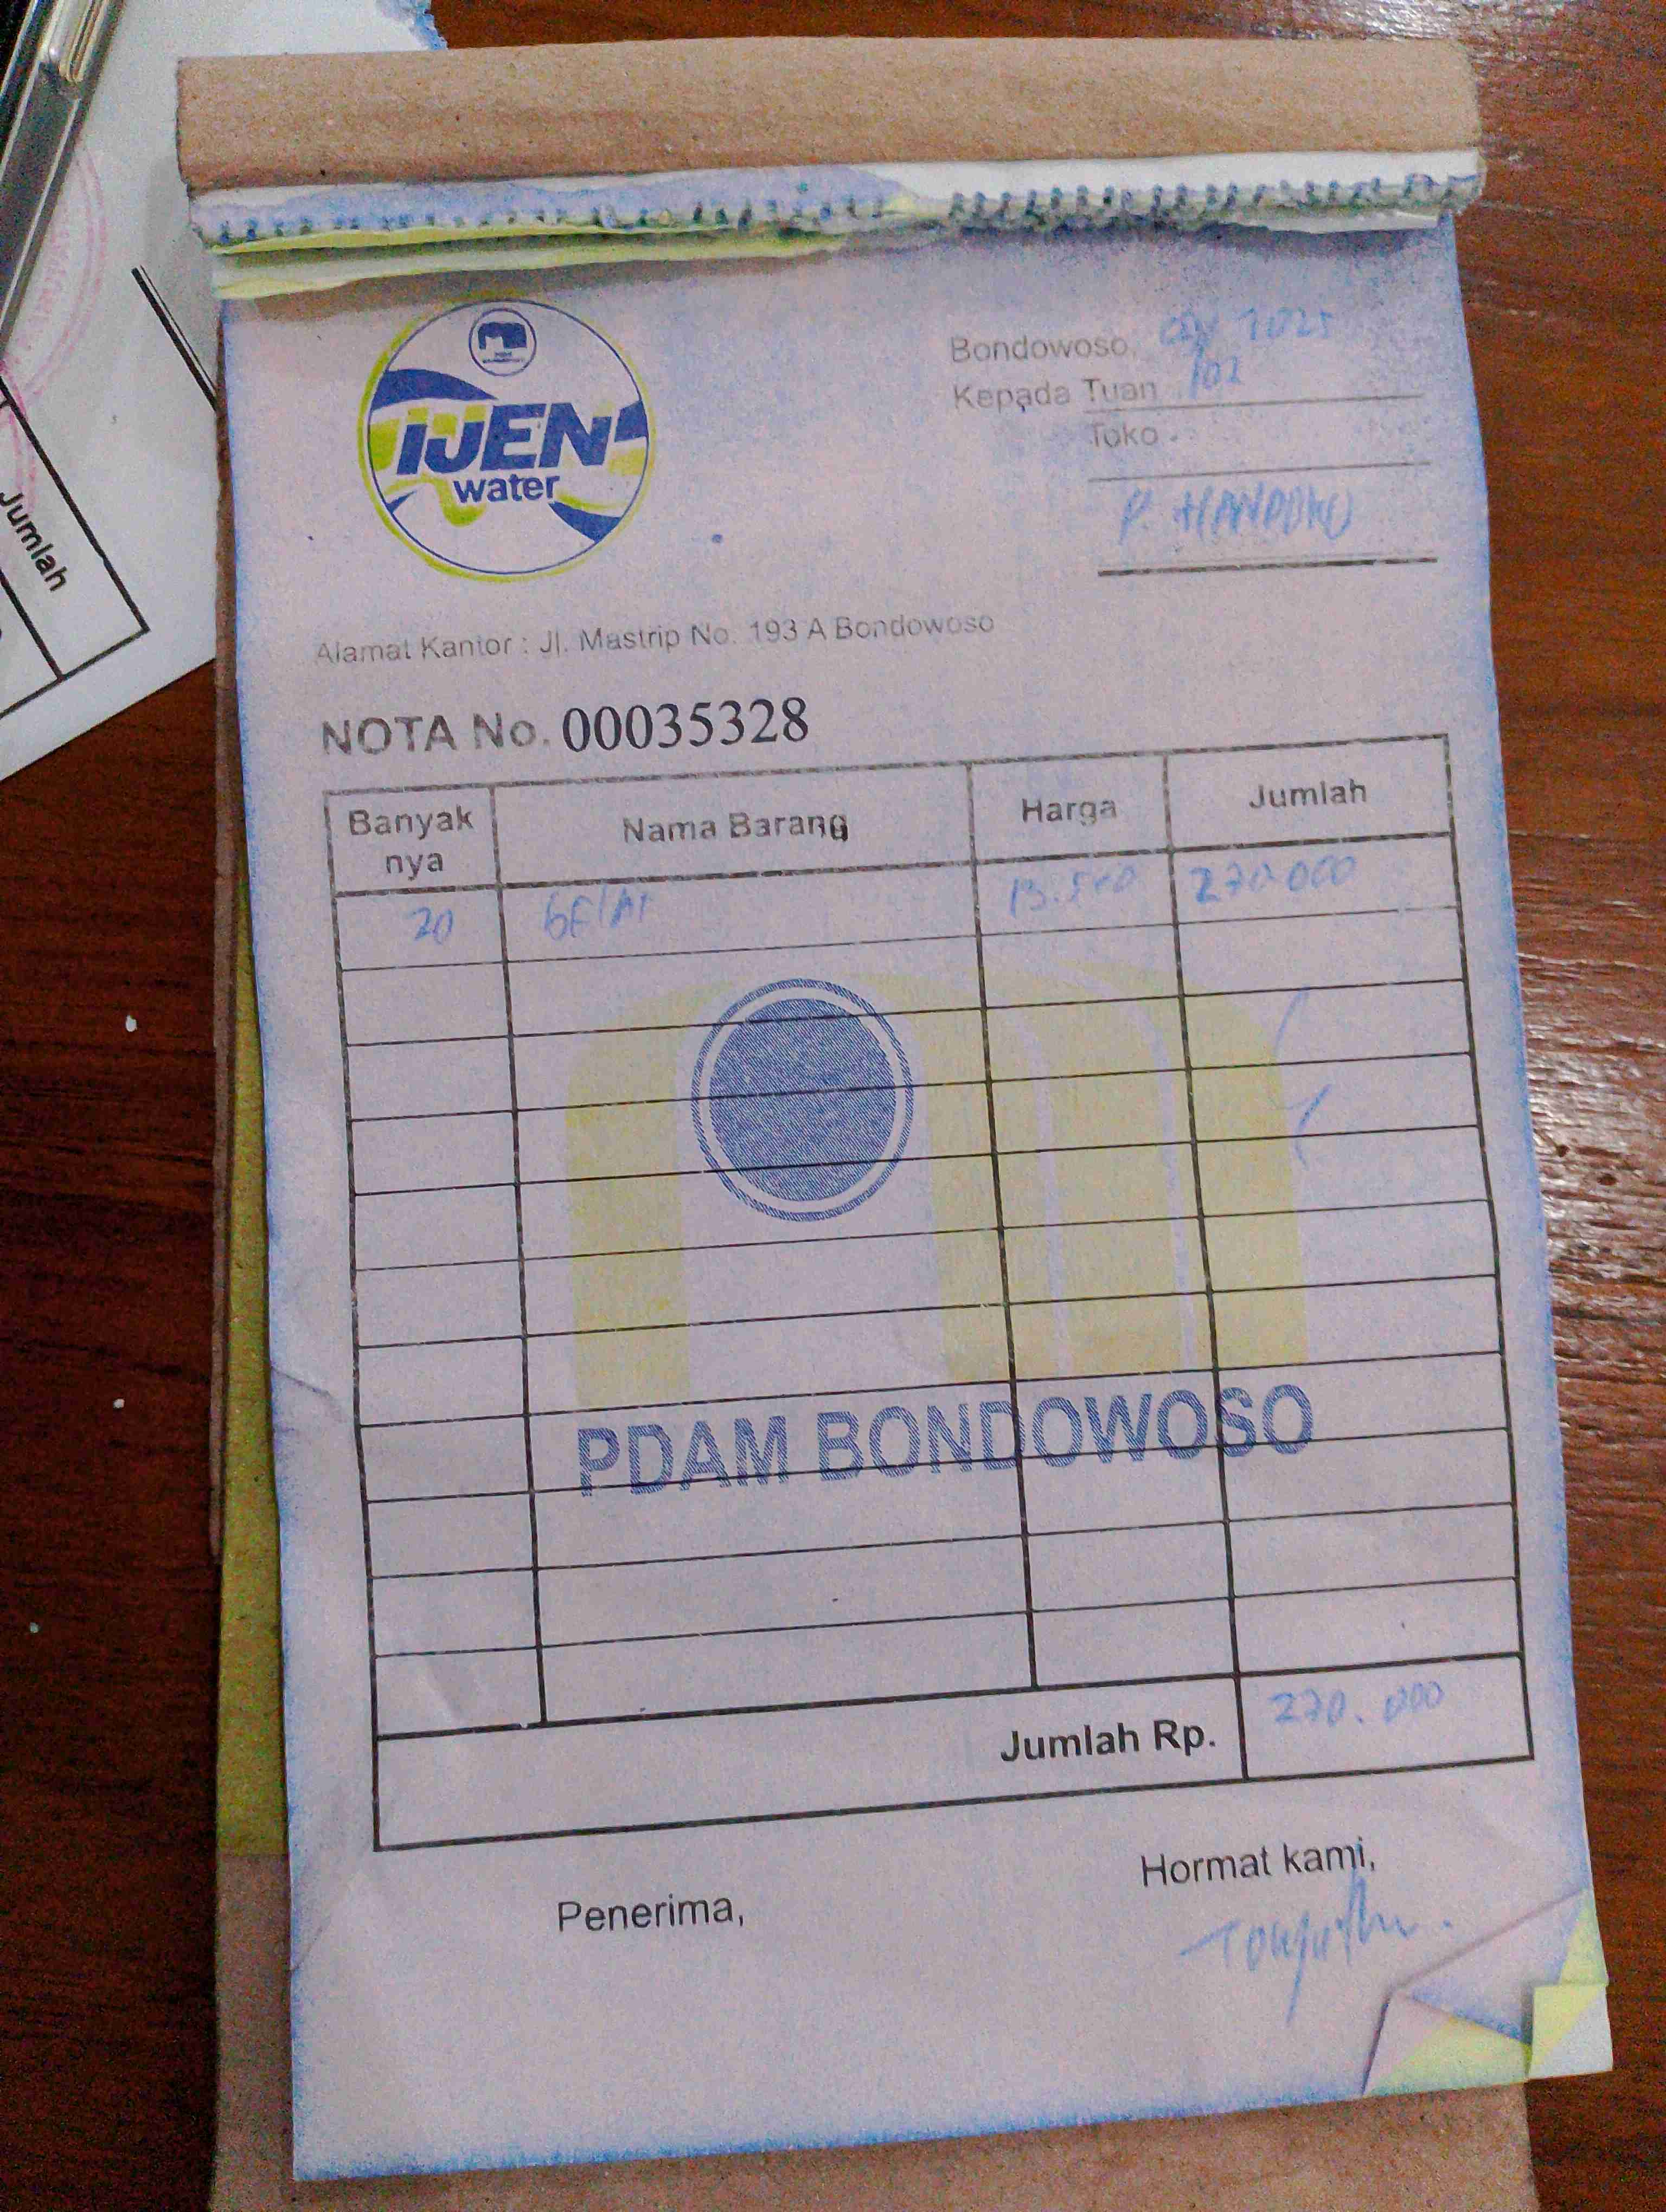 Jumlah
IJEN
water
Bondowoso, 2025
Kepada Tuan
Toko
P. HANDOKO
Alamat Kantor : Jl. Mastrip No. 193 A Bondowoso
NOTA No. 00035328
Banyak nya Nama Barang Harga Jumlah
20 13.500 270.000
PDAM BONDOWOSO
Jumlah Rp. 270.000
Penerima, Hormat kami,